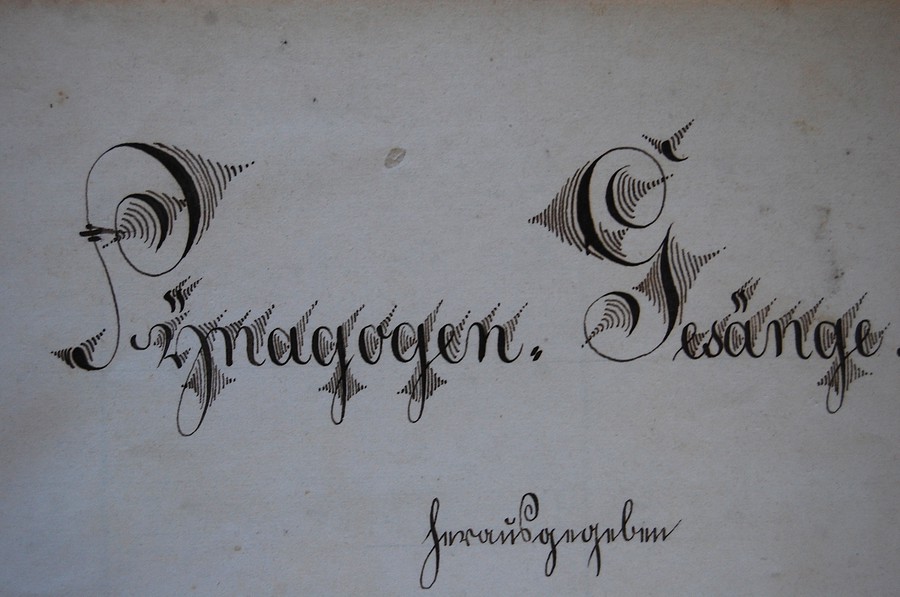 Sÿnagogen-Gesänge.
herausgegeben